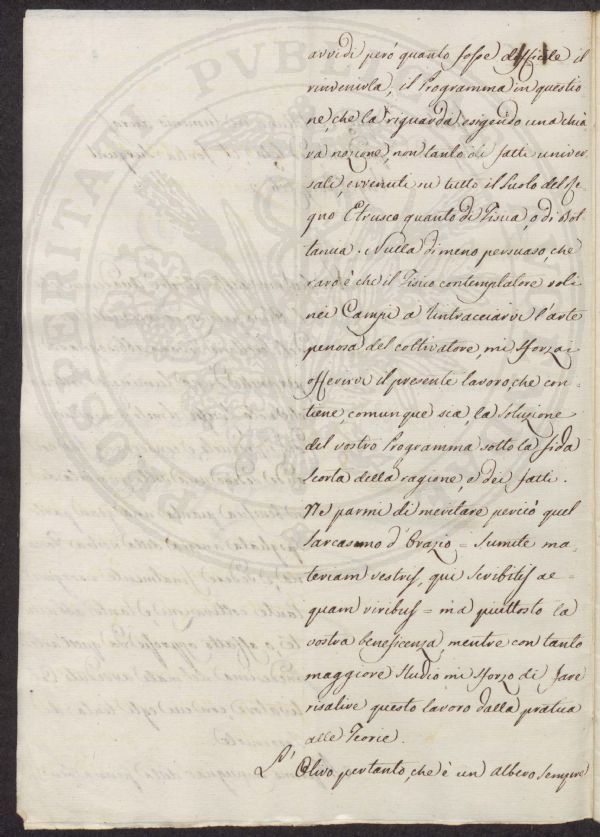 avvidi però quanto fosse difficile il
rinvenirla, il Programma in questio
ne, che la riguarda esigendo una chia
ra nozione, non tanto di fatti univer
sali, avvenuti in tutto il Suolo del Re
gno Etrusco quanto di Fisica, o di Bot
tanica. Nulla di meno persuaso, che
raro è che il Fisico contemplatore voli
nei Campi a rintracciarvi l'arte
penosa del coltivatore, mi sforzai
offerirvi il presente lavoro, che con
tiene, comunque sia, la soluzione
del vostro Programma sotto la fida
scorta della ragione, e dei fatti.
Ne parmi di meritare perciò quel
sarcasmo d'Orazio = Sumite ma-
teriam vestris, qui scribitis ae-
quam viribus = ma piuttosto la
vostra beneficenza, mentre con tanto
maggiore studio mi sforzo di fare
risalire questo lavoro dalla pratica
alle Teorie.
L'Olivo pertanto, che è un albero sempre
PROSPERITATI PUBLI